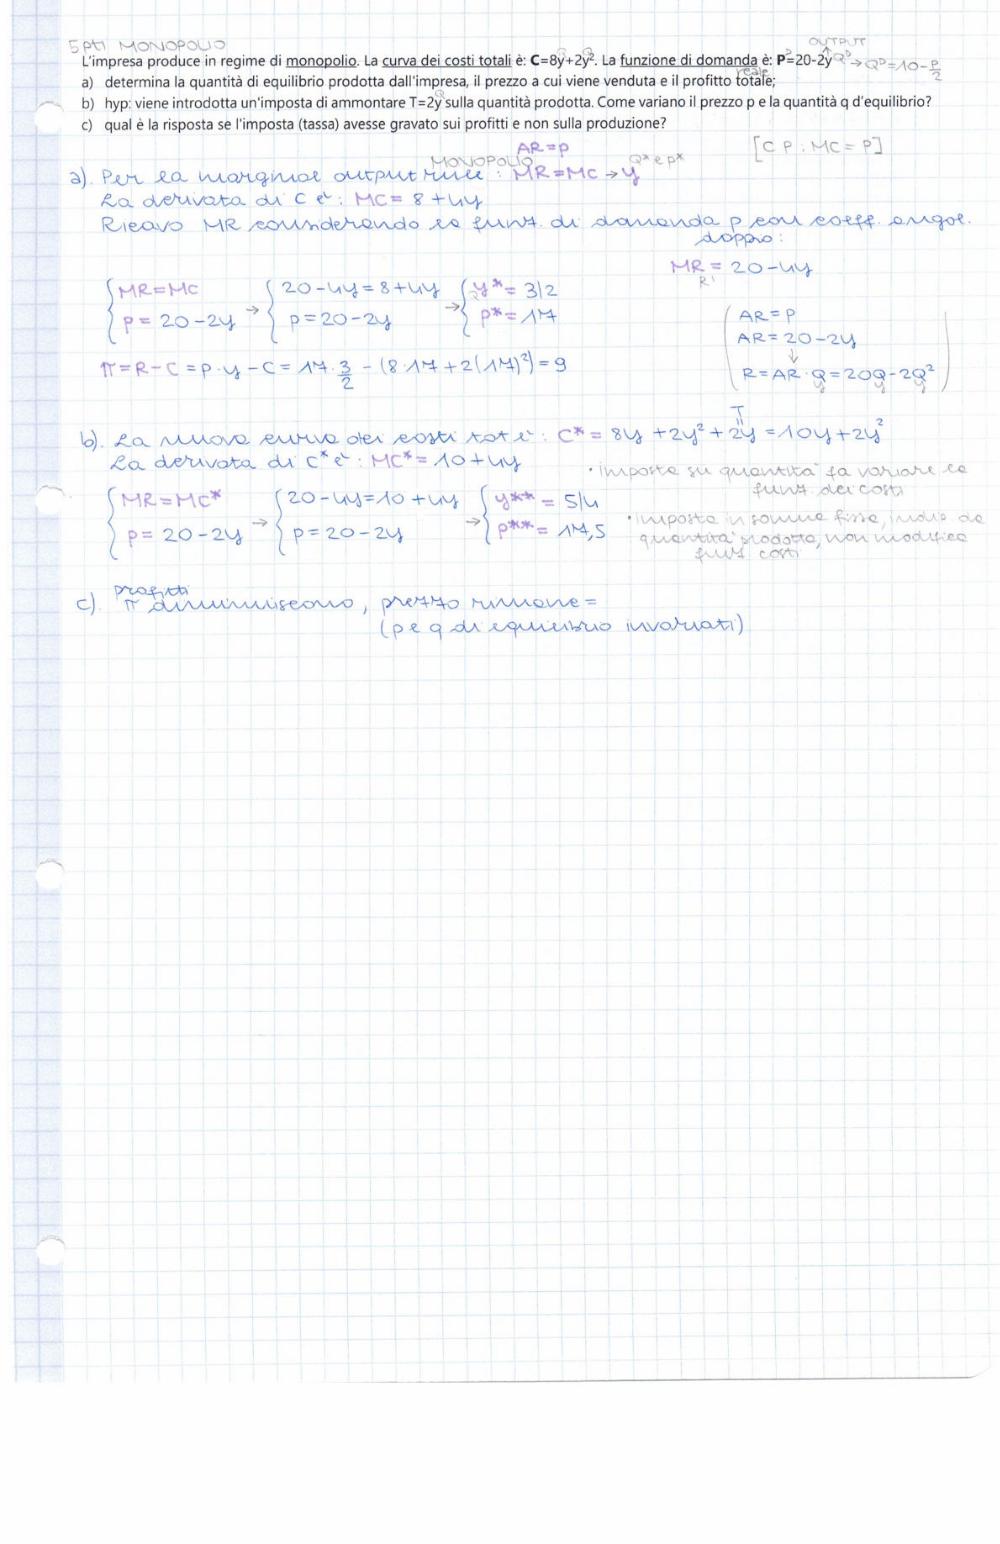 5 pti MONOPOLIO
OUTPUT
L'impresa produce in regime di monopolio. La curva dei costi totali è: C=8y+2y². La funzione di domanda è: P=20-2y → Qᴰ=10-p/2
a) determina la quantità di equilibrio prodotta dall'impresa, il prezzo a cui viene venduta e il profitto totale;
reale
b) hyp: viene introdotta un'imposta di ammontare T=2y sulla quantità prodotta. Come variano il prezzo p e la quantità q d'equilibrio?
c) qual è la risposta se l'imposta (tassa) avesse gravato sui profitti e non sulla produzione?
AR=p [CP: MC=P]
MONOPOLIO Q* e p*
a). Per la marginal output rule: MR=MC → y
La derivata di C è: MC= 8+4y
Ricavo MR considerando la funz. di domanda p con coeff. angol.
doppio:
MR = 20-4y
R'
{MR=MC → {20-4y=8+4y → {y*= 3/2
p= 20-2y p=20-2y p*= 17
(AR=p
AR=20-2y
↓
R=AR·Q=20Q-2Q²)
y y y
π=R-C=p·y-C=17·3/2-(8·17+2(17)²)=9
T
b). La nuova curva dei costi tot è: C*= 8y+2y²+2y=10y+2y²
La derivata di C* è: MC*=10+4y
• imposta su quantità fa variare la
funz. dei costi
{MR=MC* → {20-4y=10+4y → {y**= 5/4
p= 20-2y p=20-2y p**= 17,5
• imposta in somma fissa, indip da
quantità prodotta, non modifica
funz costi
profitti
c). π diminuiscono, prezzo rimane =
(p e q di equilibrio invariati)